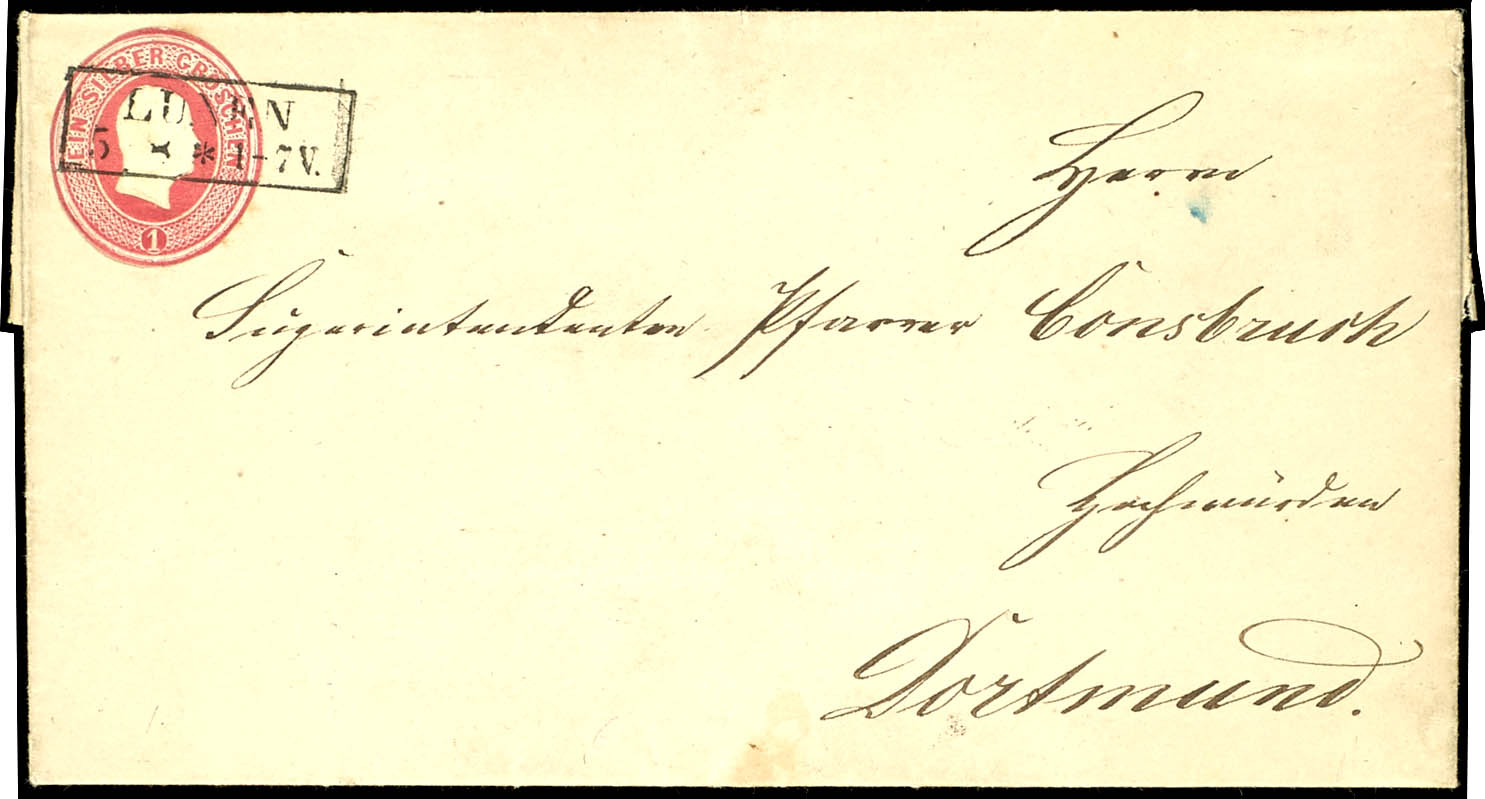 EIN SILBER GROSCHEN
LUNEN
5 8 * 1-7 V.
1
Herrn
Superintendenten Pfarrer Consbruch
Hochwürden
Dortmund.